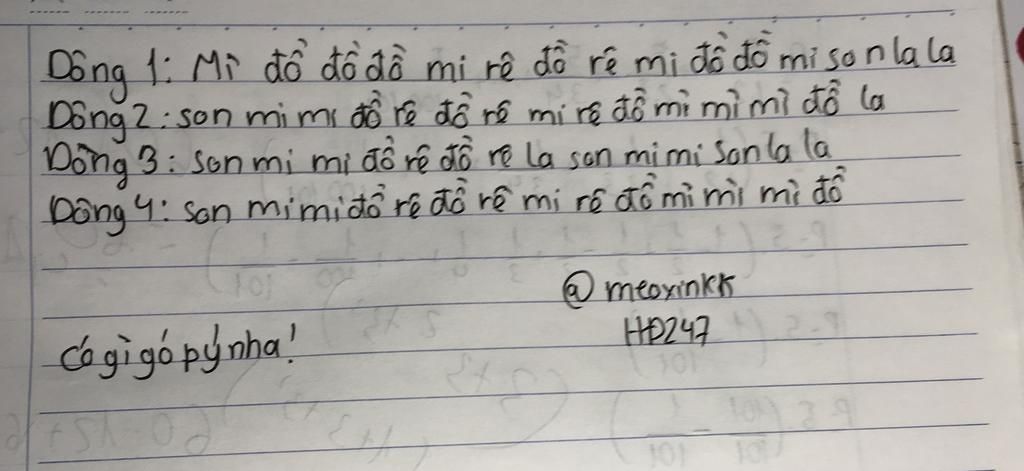 Dòng 1: Mì đồ đồ đồ mi rê đồ rê mi đồ đồ mi son la la
Dòng 2: son mi mi đồ rê đồ rê mi rê đồ mì mì mì đồ la
Dòng 3: son mi mi đồ rê đồ rê la son mi mi son la la
Dòng 4: son mi mi đồ rê đồ rê mi rê đồ mì mì mì đồ
@meoxinkk
HD247
Có gì góp ý nha!